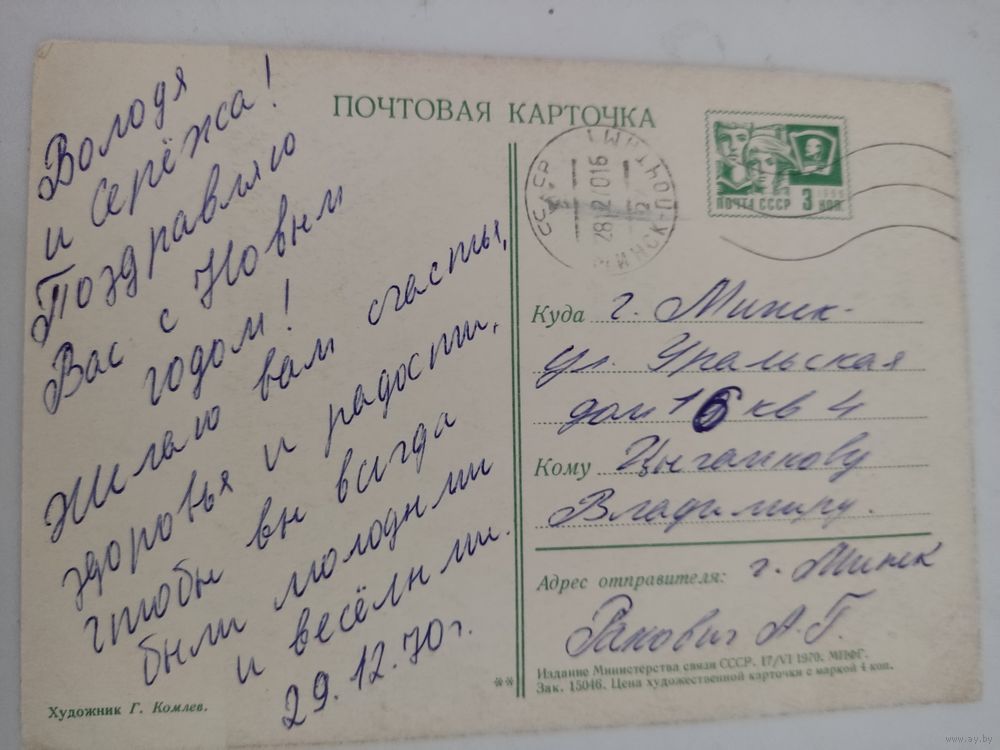 Володя
и Серёжа!
Поздравляю
Вас с Новым
годом!
Желаю вам счастья,
здоровья и радости,
чтобы вы всегда
были молодыми
и весёлыми.
29.12.70г.
Художник Г. Комлев.
**
ПОЧТОВАЯ КАРТОЧКА
ПОЧТА СССР 3 коп
СССР
28 12 7016
МИНСК-ПОЧТАМТ
Куда г. Минск-
ул. Уральская
дом 16 кв 4
Кому Цыганкову
Владимиру.
Адрес отправителя: г. Минск
Ракович А.Г.
Издание Министерства связи СССР. 17/VI 1970. МПФГ.
Зак. 15046. Цена художественной карточки с маркой 4 коп.
www.ay.by